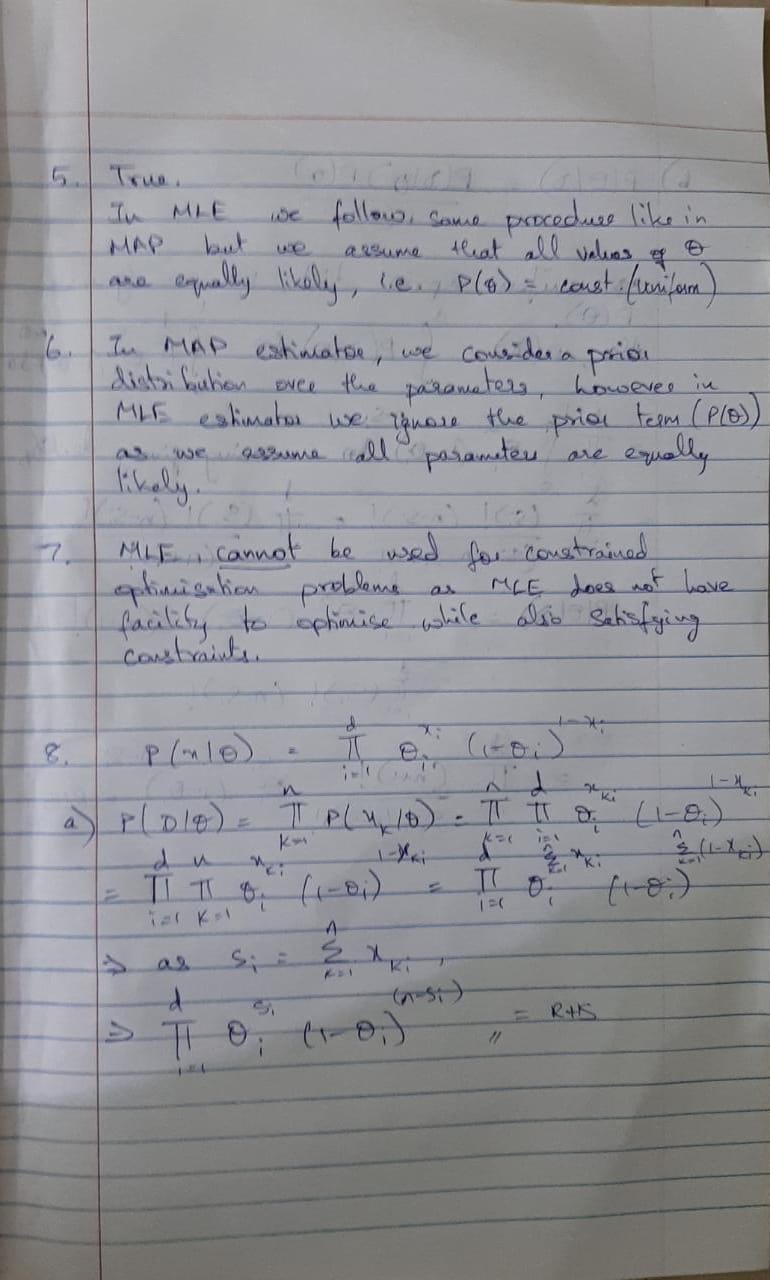 5. True.
In MLE we follow same procedure like in
MAP but we assume that all values of θ
are equally likely, i.e. P(θ) = const. (uniform)
6. In MAP estimator, we consider a prior
distribution over the parameters, however in
MLE estimator we ignore the prior term (P(θ))
as we assume all parameters are equally
likely.
7. MLE, cannot be used for constrained
optimisation problems as MLE does not have
facility to optimise while also satisfying
constraints.
8. P(x|θ) = ∏_{i=1}^{d} θ_i^{x_i} (1-θ_i)^{1-x_i}
a) P(D|θ) = ∏_{k=1}^{n} P(x_k|θ) = ∏_{k=1}^{n} ∏_{i=1}^{d} θ_i^{x_{ki}} (1-θ_i)^{1-x_{ki}}
= ∏_{i=1}^{d} ∏_{k=1}^{n} θ_i^{x_{ki}} (1-θ_i)^{1-x_{ki}} = ∏_{i=1}^{d} θ_i^{∑_{k=1}^{n} x_{ki}} (1-θ_i)^{∑_{k=1}^{n} (1-x_{ki})}
⇒ as s_i = ∑_{k=1}^{n} x_{ki},
⇒ ∏_{i=1}^{d} θ_i^{s_i} (1-θ_i)^{(n-s_i)}〃 = RHS